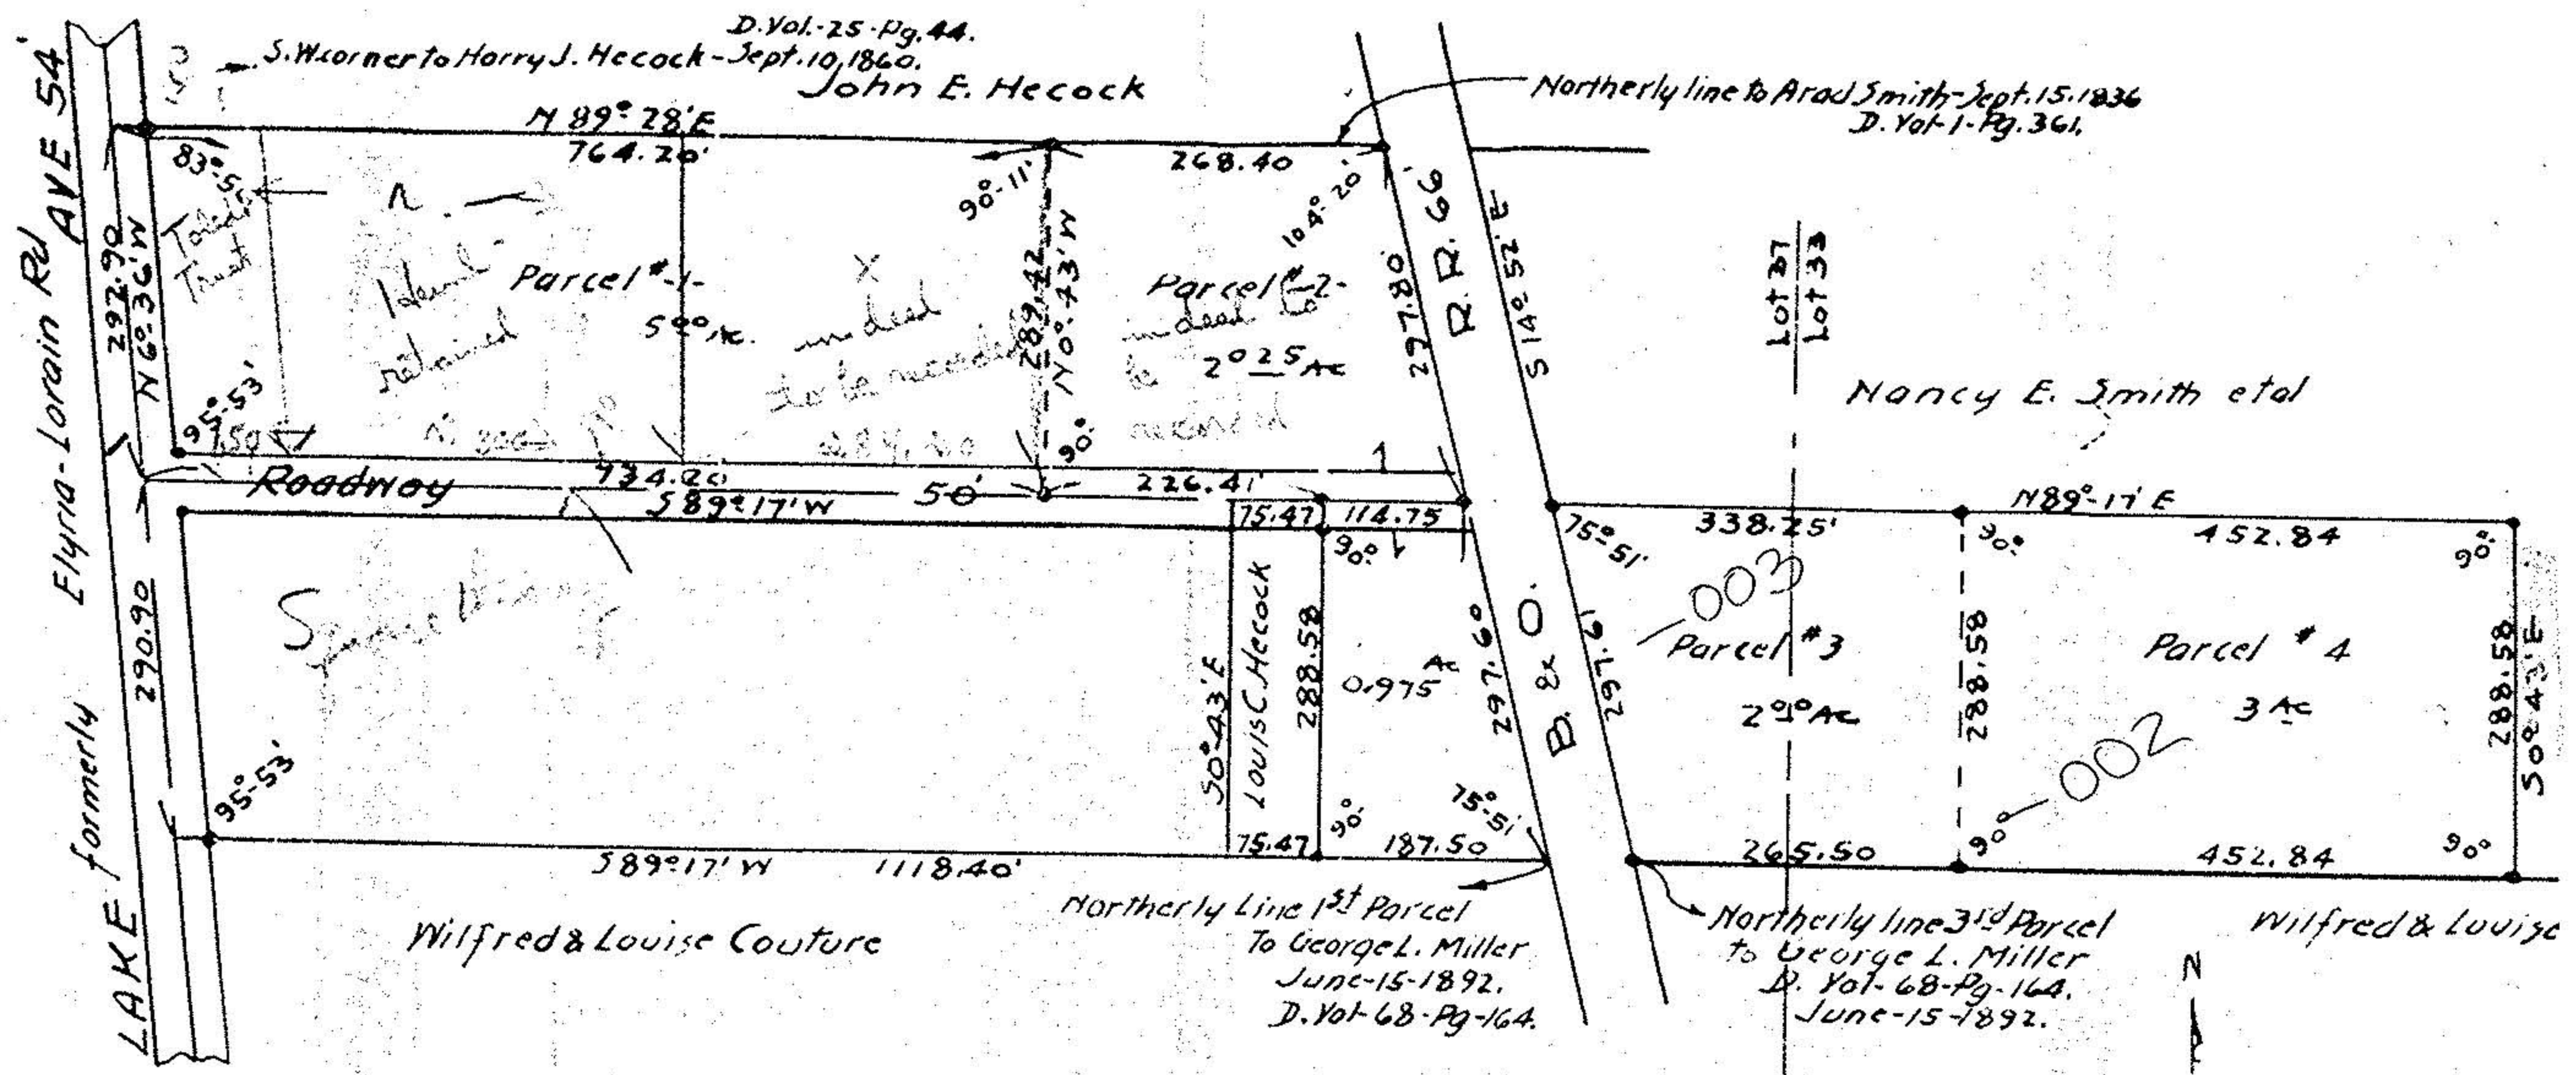 D.Vol.-25-Pg.44.
S.W.corner to Harry J. Hecock-Sept.10,1860.
John E. Hecock
Northerly line to Arad Smith-Sept.15.1836
D.Vol-1-Pg.361.
N 89°28'E
764.20'
268.40
83°-54'
90°-11'
104°-20'
LAKE formerly Elyria-Lorain Rd AVE 54'
292.90
N 6°-36'W
Toledo
Trust
retained
Parcel #-1-
5.00 Ac.
X
in deed
to be
289.42
N 0°-43'W
Parcel #-2-
in deed to
be
record
2.025 Ac
297.80
B. & O. R.R. 66'
S 14°-52'E
Lot 37
Lot 33
Nancy E. Smith etal
95°-53'
90°
Roadway
734.20
S 89°17'W
50'
226.41'
75.47
114.75
90°
75°-51'
338.25'
N 89°-17'E
90°
452.84
90°
290.90
S 0°-43'E
Louis C. Hecock
288.58
0.975 Ac
297.60
297.61
-003
Parcel #3
2.00 Ac
288.58
Parcel #4
3 Ac
288.58
S 0°43'E
-002
95°-53'
S 89°17'W
1118.40'
75.47
90°
187.50
75°-51'
265.50
90°
452.84
90°
Wilfred & Louise Couture
Northerly Line 1st Parcel
To George L. Miller
June-15-1892.
D.Vol-68-Pg-164.
Northerly line 3rd Parcel
to George L. Miller
D. Vol-68-Pg-164.
June-15-1892.
Wilfred & Louise
N